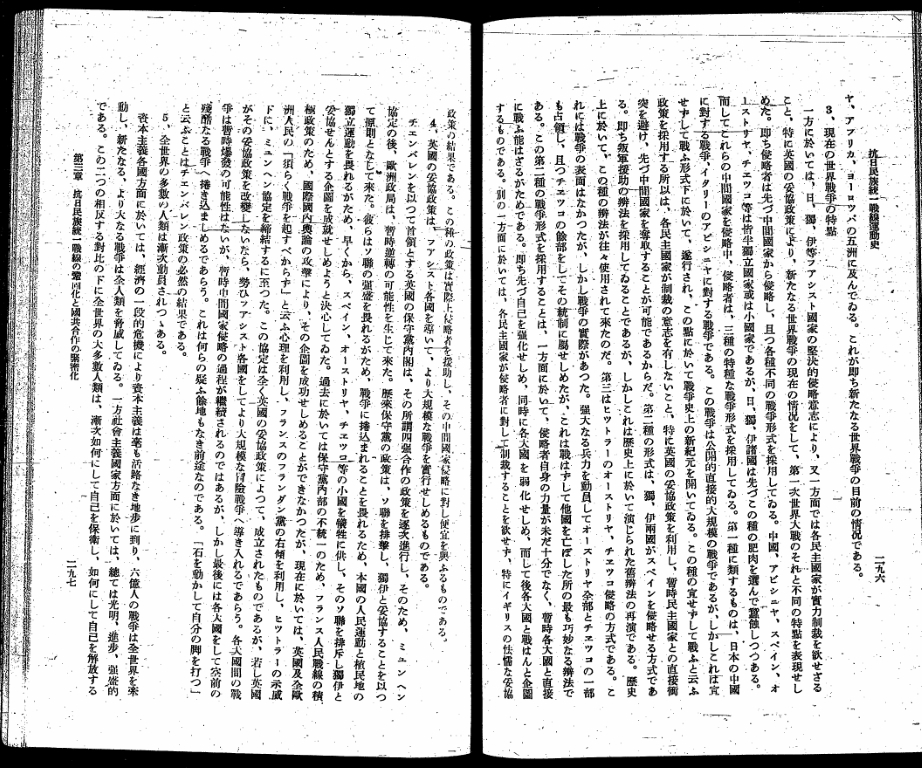 抗日民族統一戰線運動史
一九六
ヤ、アフリカ、ヨーロッパの五洲に及んでゐる。これが即ち新たなる世界戰爭の目前の情況である。
3、現在の世界戰爭の特點
一方に於いては、日、獨、伊等ファシスト國家の堅決的侵略意志により、又一方面では各民主國家が實力制裁を欲せざる
こと、特に英國の妥協政策により、新たなる世界戰爭の現在の情況をして、第一次世界大戰のそれと不同の特點を表現せし
めた。即ち侵略者は先づ中間國家から侵略し、且つ各種不同の戰爭形式を採用してゐる。中國、アビシニヤ、スペイン、オ
ーストリヤ、チエツコ等は皆半獨立國家或は小國家であるが、日、獨、伊諸國は先づこの種の肥肉を選んで蠶蝕しつつある。
而してこれらの中間國家を侵略中、侵略者は、三種の特種な戰爭形式を採用してゐる。第一種に類するものは、日本の中國
に對する戰爭、イタリーのアビシニヤに對する戰爭である。この戰爭は公開的直接的大規模の戰爭であるが、しかしこれは宣
せずして戰ふ形式下に於いて、遂行され、この點に於いて戰爭史上の新紀元を開いてゐる。この種の宣せずして戰ふと云ふ
政策を採用する所以は、各民主國家が制裁の意志を有しないこと、特に英國の妥協政策を利用し、暫時民主國家との直接衝
突を避け、先づ中間國家を奪取することが可能であるからだ。第二種の形式は、獨、伊兩國がスペインを侵略せる方式であ
る。即ち叛軍援助の辦法を採用してゐることであるが、しかしこれは歷史上に於いて演じられた舊辦法の再演である。歷史
上に於いて、この種の辦法が往々使用されて來たのだ。第三はヒツトラーのオーストリヤ、チエツコ侵略の方式である。こ
れには戰爭の表面はなかつたが、しかし戰爭の實際があつた。强大なる兵力を動員してオーストリヤ全部とチエツコの一部
も占領し、且つチエツコの餘部をしてその統制に屬せしめたが、これは戰はずして他國を亡ぼした所の最も巧妙なる辦法で
ある。この第二種の戰爭形式を採用することは、一方面に於いて、侵略者自身の力量が未だ十分でなく、暫時各大國と直接
に戰ふ能はざるがためである。即ち先づ自己を强化せしめ、同時に各大國を弱化せしめ、而して後各大國と戰はんと企圖
するものである。別の一方面に於いては、各民主國家が侵略者に對して制裁することを欲せず、特にイギリスの怯懦な妥協
政策の結果である。この種の政策は實際上侵略者を援助し、その中間國家侵略に對し便宜を與ふるものである。
4、英國の妥協政策は、ファシスト各國を導いて、より大規模な戰爭を實行せしめるものである。
チエンバレンを以つて首領とする英國の保守黨內閣は、その所謂四强合作の政策を逐次進行し、そのため、ミュンヘン
協定の後、歐洲政局は、暫時逆轉の可能性を生じて來た。歷來保守黨の政策は、ソ聯を排擊し、獨伊と妥協することを以つ
て原則となして來た。彼らはソ聯の强盛を畏れるがため、戰爭に捲込まれることを畏れるがため、本國の人民運動と植民地の
獨立運動を畏れるがため、早くから、スペイン、オーストリヤ、チエツコ等の小國を犧牲に供し、そのソ聯を排斥し獨伊と
妥協せんとする企圖を成就せしめようと決心してゐた。過去に於いては保守黨內部の不統一のため、フランス人民戰線の積
極政策のため、國際國內輿論の攻擊により、その企圖を成功せしめることができなかつたが、現在に於いては、英國及全歐
洲人民の「須らく戰爭を起すべからず」と云ふ心理を利用し、フランスのフランダン黨の右傾を利用し、ヒツトラーの示威
下に、ミュンヘン協定を締結するに至つた。この協定は全く英國の妥協政策によつて、成立されたものであるが、若し英國
がその妥協政策を改變しないなら、勢ひファシスト各國をしてより大規模な冒險戰爭へ導き入れるであらう。各大國間の戰
爭は暫時爆發の可能性はないが、暫時中間國家侵略の過程が繼續されるのではあるが、しかし最後には各大國をして空前の
殘酷なる戰爭へ捲き込ましめるであらう。これは何らの疑ふ餘地もなき前途なのである。「石を動かして自分の脚を打つ」
と云ふことはチエンバレン政策の必然の結果である。
5、全世界の多數の人類は漸次動員されつゝある。
資本主義各國方面に於いては、經濟の一段的危機により資本主義は毫も活路なき地步に到り、六億人の戰爭は全世界を震
動し、新たなる、より大なる戰爭は全人類を脅威してゐる。一方社會主義國家方面に於いては、總ては光明、進步、强盛的
である。この二つの相反する對比の下に全世界の大多數人類は、漸次如何にして自己を保衛し、如何にして自己を解放する
第三章 抗日民族統一戰線の鞏固化と國共合作の緊密化
二九七